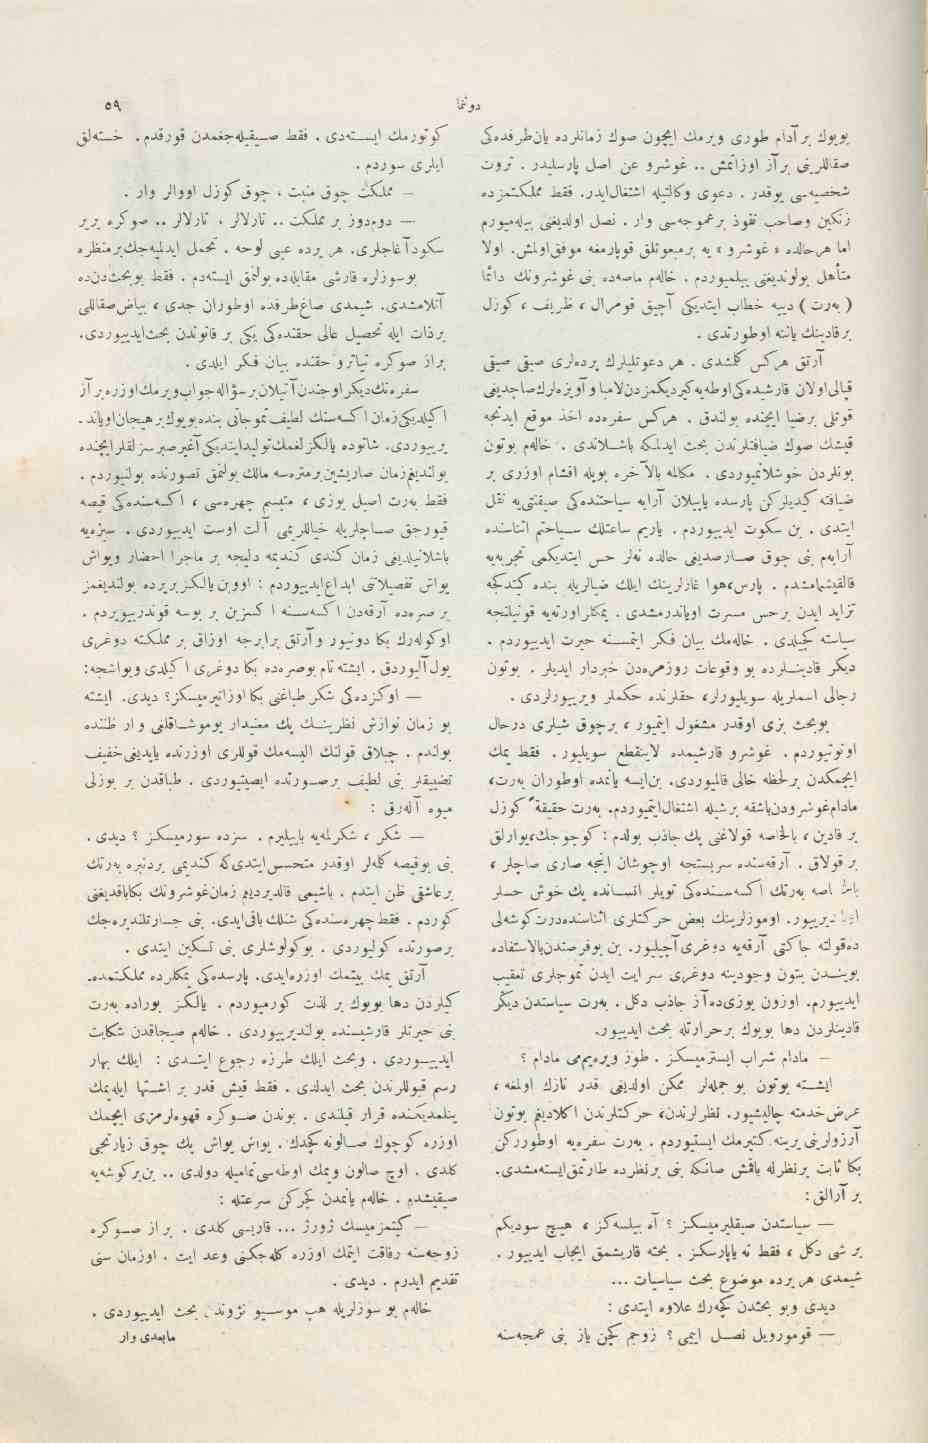 دوننما
٥٩
بويوك بر آدام طورى ويرمك ايچون صوك زمانلرده يان طرفده‌كى
صقاللرينى بر آز اوزاتمش .. غوشرو عن اصل پارسليدر . ثروت
شخصيه‌سى يوقدر . دعوى وكالتيله اشتغال ايدر. فقط مملكتمزده
زنكين وصاحب نفوذ بر عموجه‌سى وار . نصل اولديغنى بيله‌ميورم
اما هر حالده « غوشرو » يه بر مبعوثلق قوپارمغه موفق اولمش. اولا
متأهل بولونديغنى بيلميوردم . خاله‌م ماصه‌ده بنى غوشرونك دائما
( به‌رت ) دييه خطاب ايتديكى آچيق قومرال ، ظريف ، كوزل
بر قادينك ياننه اوطورتدى .
آرتق هركس كلمشدى . هر دعوتليلرك پرده‌لرى صيقى صيقى
قپالى اولان قارشيده‌كى اوطه‌يه كيرديكمزدن لامبا و آويزه‌لرك صاچديغى
قوتلى بر ضيا ايچنده بولندق . هركس سفره‌ده اخذ موقع ايدنجه
قيشك صوك ضيافتلرندن بحث ايدلمكه باشلاندى . خاله‌م بوتون
بونلردن خوشلانميوردى . مكالمه بالآخره بويله اقشام اوزرى بر
ضيافته كيديلركن پارسده ياپيلان آرابه سياحتنده‌كى صيقنتى‌يه نقل
ايتدى . بن سكوت ايدييوردم . ياريم ساعتلك سياحتم اثناسنده
آرابه‌م بنى چوق صارصديغى حالده نه‌لر حس ايتديكمى تجربه‌يه
قالقيشمامشدم . پارس، هوا غازلرينك ايلك ضيالريله بنده كيتدكجه
تزايد ايدن بر حس مسرت اوياندرمشدى . يمكلر اورته‌يه قونيلنجه
سياسته كچيلدى . خاله‌مك بيان فكر ايتمسنه حيرت ايدييوردم .
ديكر قادينلرده بو وقوعات روزمره‌دن خبردار ايديلر . بوتون
رجالى اسملريله سويليورلر، حقلرنده حكملر ويرييورلردى .
بو بحث بزى اوقدر مشغول ايتميور ، بر چوق شيلرى درحال
اونوتيوردم . غوشرو قارشيمده لاينقطع سويليور . فقط يمك
ايچمكدن بر لحظه خالى قالميوردى. بن ايسه يانمده اوطوران به‌رت،
مادام غوشرودن باشقه بر شيله اشتغال ايتميوردم. به‌رت حقيقةً كوزل
بر قادين ، بالخاصه قولاغنى پك جاذب بولدم : كوچوجك، يوارلق
بر قولاق . آرقه‌سنده سربستجه اوچوشان اينجه صارى صاچلر ،
بالخاصه به‌رتك اكسه‌سنده‌كى تويلر انسانده پك خوش حسلر
ويرييور. اوموزلرينك بعض حركتلرى اثناسنده درت كوشه‌لى
ده‌قولته جاكتى آرقه‌يه دوغرى آچيليور. بن بو فرصتدن بالاستفاده
بوينندن بتون وجودينه دوغرى سرايت ايدن تموجلرى تعقيب
ايدييورم. اوزون يوزى ده آز جاذب دكل . به‌رت سياستدن ديكر
قادينلردن دها بويوك بر حرارتله بحث ايدييور.
— مادام شراب ايسترميسكز . طوز ويره‌يم‌مى مادام ؟
ايشته بوتون بو جمله‌لر ممكن اولديغى قدر نازك اولمغه ،
عرض خدمته چاليشيور. نظرلرندن، حركتلرندن اكلاديغم بوتون
آرزولرينى يرينه كتيرمك ايستيوردم . به‌رت سفره‌يه اوطورركن
بكا ثابت بر نظرله باقمش صانكه بنى بر نظرده طارتمق ايسته‌مشدى.
بر آرالق :
— سياستدن صيقليرميسكز ؟ آه بيلسه‌كز ، هيچ سوديكم
بر شى دكل ، فقط نه ياپارسكز . بحثه قاريشمق ايجاب ايدييور .
شيمدى هر يرده موضوع بحث سياسيات ...
ديدى وبو بحثدن كچه‌رك علاوه ايتدى :
— قومورويل نصل ايمى ؟ زوجم كچن ياز بنى عمجه‌سنه
كوتورمك ايسته‌دى . فقط صيقيله‌جغمدن قورقدم . خسته‌لق
ايلرى سوردم .
— مملكت چوق منبت ، چوق كوزل اووالر وار .
— دوم‌دوز بر مملكت .. تارلالر ، تارلالر .. صوكره يرير
سكود آغاجلرى. هر يرده عينى لوحه . تحمل ايدلميه‌جك بر منظره
بو سوزلره قارشى مقابله‌ده بولنمق ايسته‌دم . فقط بو بحث‌دن ده
آتلامشدى. شيمدى صاغ طرفده اوطوران جدى ، بياض صقاللى
بر ذات ايله تحصيل عالى حقنده‌كى يكى بر قانوندن بحث ايدييوردى.
براز صوكره تياترو حقنده بيان فكر ايلدى .
سفره‌نك ديكر اوجندن آتيلان بر سؤاله جواب ويرمك اوزره بر آز
اكيلديكى زمان اكسه‌سنك لطيف تموجاتى بنده بويوك بر هيجان اوياند-
يرييوردى. شاتوده يالكزلغمك توليد ايتديكى آغير صبرسزلقلر ايچنده
بولنديغم زمان صاريشين بر متره‌سه مالك بولنمق تصورنده بولنيوردم .
فقط به‌رت اصيل يوزى ، متبسم چهره‌سى ، اكسه‌سنده‌كى قيصه
قيورجق صاچلريله خياللريمى آلت اوست ايدييوردى . سبزه‌يه
باشلانيلديغى زمان كندى كنديمه دليجه بر ماجرا احضار ويواش
يواش تفصيلاتنى ابداع ايدييوردم : اوون يالكز بر يرده بولنديغمز
بر صره‌ده آرقه‌دن اكسه‌سنه اكسزين بر بوسه قوندرييوردم .
اوكوله‌رك بكا دونيور و آرتق برابرجه اوزاق بر مملكته دوغرى
يول آليوردق. ايشته تام بو صره‌ده بكا دوغرى اكيلدى ويواشجه:
— اوكزده‌كى شكر طباغنى بكا اوزاتيرميسكز؟ ديدى. ايشته
بو زمان نوازش نظرينك پك معنيدار بوموشاقلغى وار ظننده
بولندم . چپلاق قولنك البسه‌مك قوللرى اوزرنده ياپديغى خفيف
تضييقلر بنى لطيف بر صورتده ايصيتيوردى . طباقدن بر بوزلى
ميوه آله‌رق :
— شكر ، شكرلمه‌يه باييليرم . سزده سورميسكز ؟ ديدى .
بنى بو قيصه كلمه‌لر اوقدر متحسس ايتدى كه كنديمى بردنبره به‌رتك
بر عاشقى ظن ايتدم . باشيمى قالديرديغم زمان غوشرونك بكا باقديغنى
كوردم . فقط چهره‌سنده‌كى شنلك باقى ايدى. بنى جسارتلنديره‌جك
بر صورتده كوليوردى . بو كولوشلرى بنى تسكين ايتدى .
آرتق يمك بيتمك اوزره ايدى. پارسده‌كى يمكلرده مملكتمده-
كيلردن دها بويوك بر لذت كورميوردم . يالكز بوراده به‌رت
بنى حيرتلر قارشيسنده بولنديرييوردى . خاله‌م صيجاقدن شكايت
ايدييوردى . وبحث ايلك طرزه رجوع ايتدى : ايلك بهار
رسم قبوللرندن بحث ايدلدى . فقط قيش قدر بر اشتها ايله يمك
ينلمديكنده قرار قيلندى . بوندن صوكره قهوه‌لرمزى ايچمك
اوزره كوچوك صالونه كچدك. يواش يواش پك چوق زيارتجى
كلدى . اوچ صالون ويمك اوطه‌سى تماميله دولدى .. بن بر كوشه‌يه
صيقيشدم . خاله‌م يانمدن كچركن سرعتله :
— كيتمزميسك ژورژ ... قاريسى كلدى . براز صوكره
زوجه‌سنه رفاقت ايتمك اوزره كله‌جكنى وعد ايت . اوزمان سنى
تقديم ايدرم . ديدى .
خاله‌م بو سوزلريله هپ موسيو نژوندن بحث ايدييوردى .
مابعدى وار